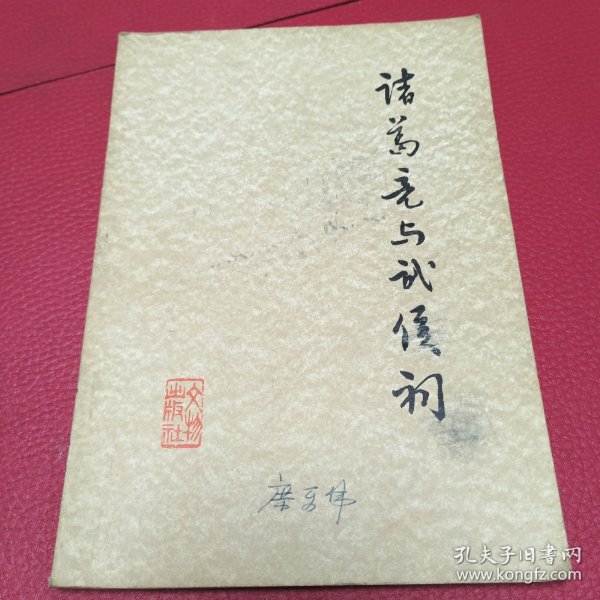 诸葛亮与武侯祠
文物
出版社
孔夫子旧书网
www.kongfz.com